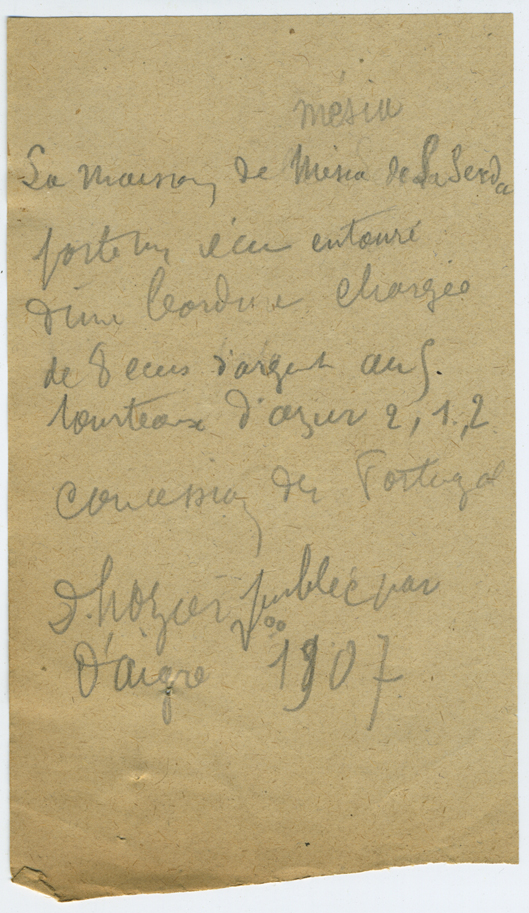 mesia
La maison de Mesia de La Serda
porte un écu entouré
d'une bordure chargée
de 8 ecus d'argent au 5.
tourteaux d'azur 2, 1, 2
concession du Portugal
d'hozier publié par
d'aigre 1907